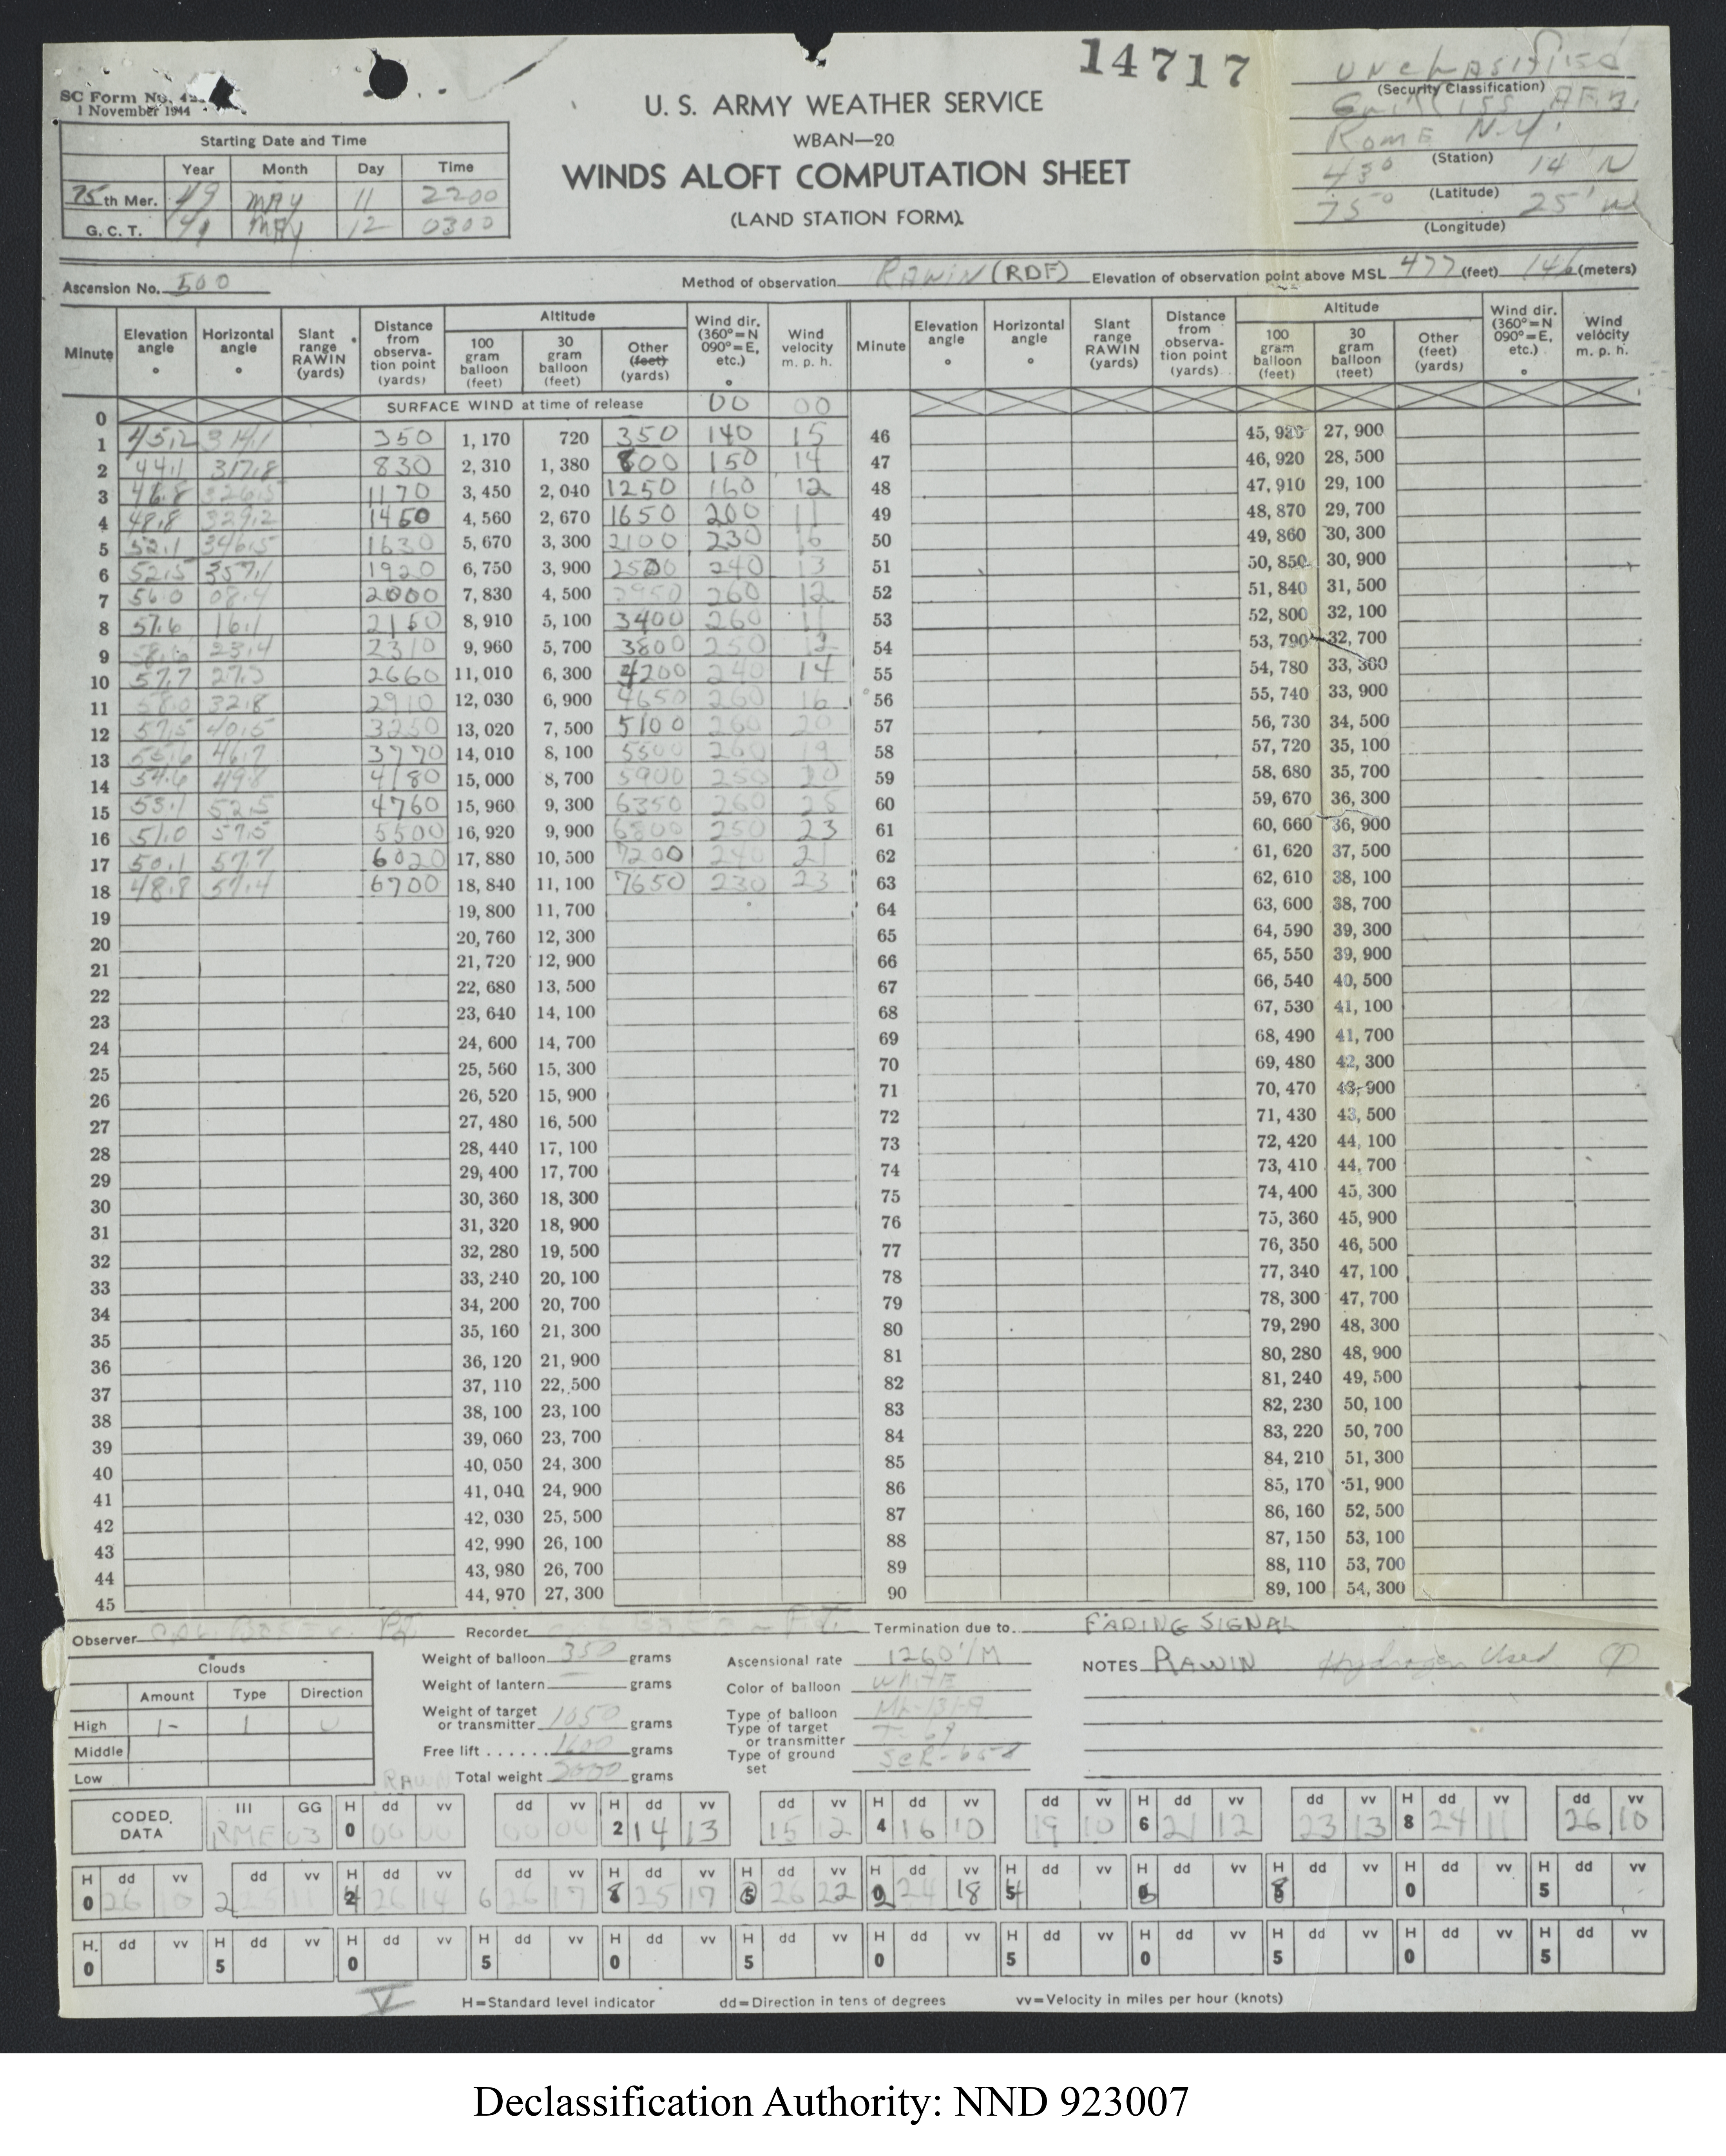 14717
UNCLASSIFIED
(Security Classification)
SC Form No. 42
1 November 1944
U. S. ARMY WEATHER SERVICE
WBAN—20
WINDS ALOFT COMPUTATION SHEET
(LAND STATION FORM).
Griffiss AFB.
ROME N.Y.
(Station)
43° 14' N
(Latitude)
75° 25' W
(Longitude)
Starting Date and Time
Year Month Day Time
75th Mer. 49 MAY 11 2200
G. C. T. 49 MAY 12 0300
Ascension No. 500 Method of observation RAWIN (RDF) Elevation of observation point above MSL 477 (feet) 146 (meters)
Minute Elevation angle ° Horizontal angle ° Slant range RAWIN (yards) Distance from observation point (yards) Altitude 100 gram balloon (feet) 30 gram balloon (feet) Other (feet) (yards) Wind dir. (360°=N 090°=E, etc.) ° Wind velocity m. p. h.
Minute Elevation angle ° Horizontal angle ° Slant range RAWIN (yards) Distance from observation point (yards) Altitude 100 gram balloon (feet) 30 gram balloon (feet) Other (feet) (yards) Wind dir. (360°=N 090°=E, etc.) ° Wind velocity m. p. h.
0 SURFACE WIND at time of release 00 00
1 45.2 314.1 350 1,170 720 350 140 15 46 45,920 27,900
2 44.1 317.8 830 2,310 1,380 800 150 14 47 46,920 28,500
3 46.8 326.5 1170 3,450 2,040 1250 160 12 48 47,910 29,100
4 48.8 329.2 1450 4,560 2,670 1650 200 11 49 48,870 29,700
5 52.1 346.5 1630 5,670 3,300 2100 230 16 50 49,860 30,300
6 52.5 357.1 1920 6,750 3,900 2500 240 13 51 50,850 30,900
7 56.0 08.4 2000 7,830 4,500 2950 260 12 52 51,840 31,500
8 57.6 16.1 2150 8,910 5,100 3400 260 11 53 52,800 32,100
9 58.6 23.4 2310 9,960 5,700 3800 250 12 54 53,790 32,700
10 57.7 27.3 2660 11,010 6,300 4200 240 14 55 54,780 33,300
11 58.0 32.8 2910 12,030 6,900 4650 260 16 56 55,740 33,900
12 57.5 40.5 3250 13,020 7,500 5100 260 20 57 56,730 34,500
13 55.6 46.7 3770 14,010 8,100 5500 260 19 58 57,720 35,100
14 54.6 49.8 4180 15,000 8,700 5900 250 20 59 58,680 35,700
15 53.1 52.5 4760 15,960 9,300 6350 260 25 60 59,670 36,300
16 51.0 57.5 5500 16,920 9,900 6800 250 23 61 60,660 36,900
17 50.1 57.7 6020 17,880 10,500 7200 240 21 62 61,620 37,500
18 48.8 57.4 6700 18,840 11,100 7650 230 23 63 62,610 38,100
19 19,800 11,700 64 63,600 38,700
20 20,760 12,300 65 64,590 39,300
21 21,720 12,900 66 65,550 39,900
22 22,680 13,500 67 66,540 40,500
23 23,640 14,100 68 67,530 41,100
24 24,600 14,700 69 68,490 41,700
25 25,560 15,300 70 69,480 42,300
26 26,520 15,900 71 70,470 43,900
27 27,480 16,500 72 71,430 43,500
28 28,440 17,100 73 72,420 44,100
29 29,400 17,700 74 73,410 44,700
30 30,360 18,300 75 74,400 45,300
31 31,320 18,900 76 75,360 45,900
32 32,280 19,500 77 76,350 46,500
33 33,240 20,100 78 77,340 47,100
34 34,200 20,700 79 78,300 47,700
35 35,160 21,300 80 79,290 48,300
36 36,120 21,900 81 80,280 48,900
37 37,110 22,500 82 81,240 49,500
38 38,100 23,100 83 82,230 50,100
39 39,060 23,700 84 83,220 50,700
40 40,050 24,300 85 84,210 51,300
41 41,040 24,900 86 85,170 51,900
42 42,030 25,500 87 86,160 52,500
43 42,990 26,100 88 87,150 53,100
44 43,980 26,700 89 88,110 53,700
45 44,970 27,300 90 89,100 54,300
Observer Recorder Termination due to FADING SIGNAL
Clouds
Amount Type Direction
High 1- 1 U
Middle
Low
Weight of balloon 350 grams
Weight of lantern — grams
Weight of target or transmitter 1050 grams
Free lift 1600 grams
Total weight 3000 grams
Ascensional rate 1260'/M
Color of balloon WHITE
Type of balloon ML-131-A
Type of target or transmitter T-69
Type of ground set SCR-658
NOTES RAWIN Hydrogen Used
RAWIN
CODED DATA III GG H dd vv dd vv H dd vv dd vv H dd vv dd vv H dd vv dd vv H dd vv dd vv
RME 03 0 00 00 00 00 2 14 13 15 12 4 16 10 19 10 6 21 12 23 13 8 24 11 26 10
H dd vv dd vv H dd vv dd vv H dd vv H dd vv H dd vv H dd vv H dd vv H dd vv H dd vv H dd vv
0 26 10 2 25 11 4 26 14 6 26 17 8 25 17 0 26 22 2 24 18 4 6 8 0 5
H. dd vv H dd vv H dd vv H dd vv H dd vv H dd vv H dd vv H dd vv H dd vv H dd vv H dd vv H dd vv
0 5 0 5 0 5 0 5 0 5 0 5
V
H=Standard level indicator dd=Direction in tens of degrees vv=Velocity in miles per hour (knots)
Declassification Authority: NND 923007